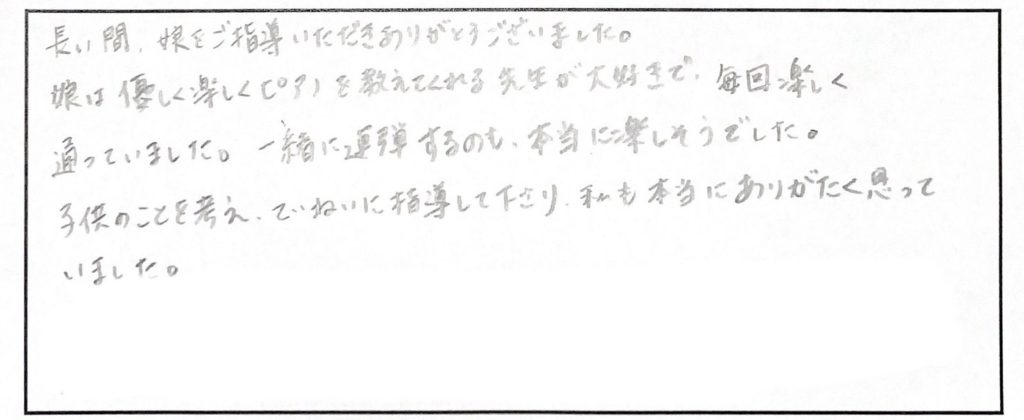 長い間、娘をご指導いただきありがとうございました。
娘は優しく楽しくピアノを教えてくれる先生が大好きで、毎回楽しく
通っていました。一緒に連弾するのも、本当に楽しそうでした。
子供のことを考え、ていねいに指導して下さり、私も本当にありがたく思って
いました。